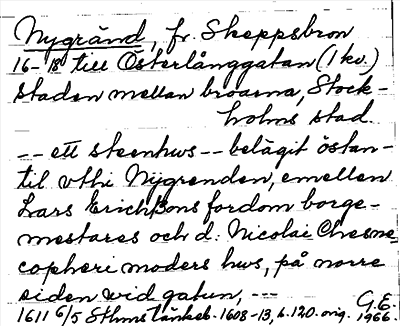 Nygränd, fr. Skeppsbron
16-18 till Österlånggatan (1 kv.)
staden mellan broarna, Stock-
holms stad.
-- ett steenhws -- belägit östan-
til vthi Nÿgrenden, emellen
Lars Erichßons fordom borge-
mestares och d. Nicolai Chesne
copheri moders hws, på norre
siden wid gatun, ---
1611 6/5 Sthms tänkeb. 1608-13, s. 120. orig.
G.E.
1966.